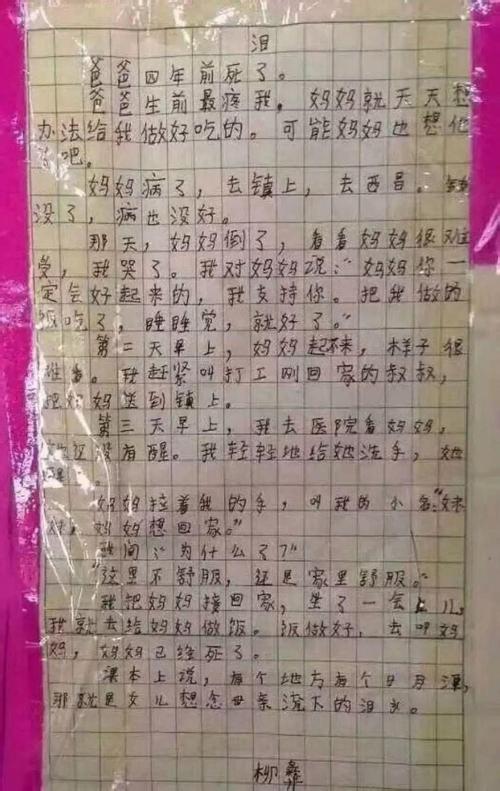 泪
爸爸四年前死了。
爸爸生前最疼我，妈妈就天天想
办法给我做好吃的。可能妈妈也想他
了吧。
妈妈病了，去镇上，去西昌。钱
没了，病也没好。
那天，妈妈倒了，看看妈妈很难
受，我哭了。我对妈妈说："妈妈你一
定会好起来的，我支持你。把我做的
饭吃了，睡睡觉，就好了。"
第二天早上，妈妈起不来，样子很
难看。我赶紧叫打工刚回家的叔叔，
把妈妈送到镇上。
第三天早上，我去医院看妈妈，
她还没有醒。我轻轻地给她洗手，她
醒
妈妈拉着我的手，叫我的小名："妹
妹，妈妈想回家。"
我问："为什么了？"
"这里不舒服，还是家里舒服。"
我把妈妈接回家，坐了一会儿，
我就去给妈妈做饭。饭做好，去叫妈
妈，妈妈已经死了。
课本上说，有个地方有个日月潭，
那就是女儿想念母亲流下的泪水。
柳彝